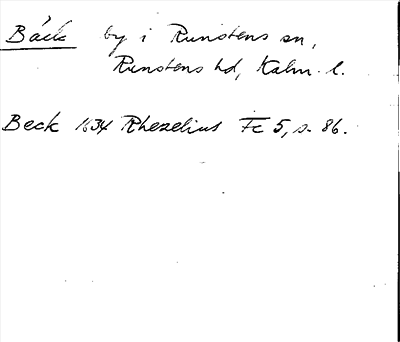 Bäck by i Runstens sn,
Runstens hd, Kalm. l.
Beck 1634 Rhezelius Fc 5, s. 86.